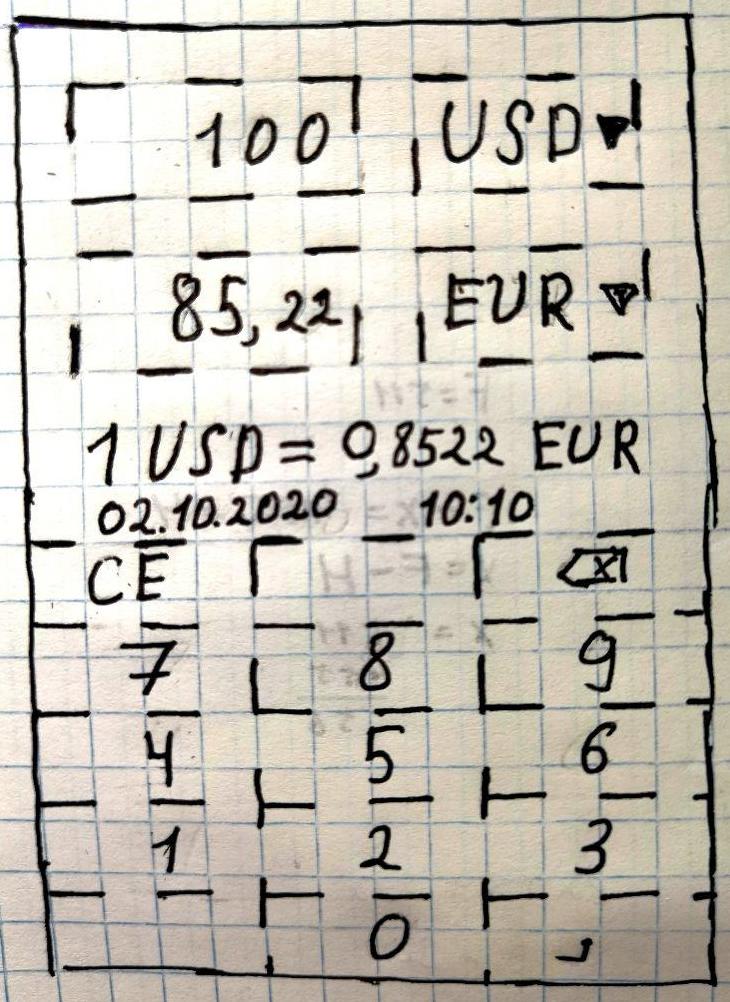 100 USD ▼
85,22 EUR ▼
1 USD = 0,8522 EUR
02.10.2020 10:10
CE ⌫
7 8 9
4 5 6
1 2 3
0 ,